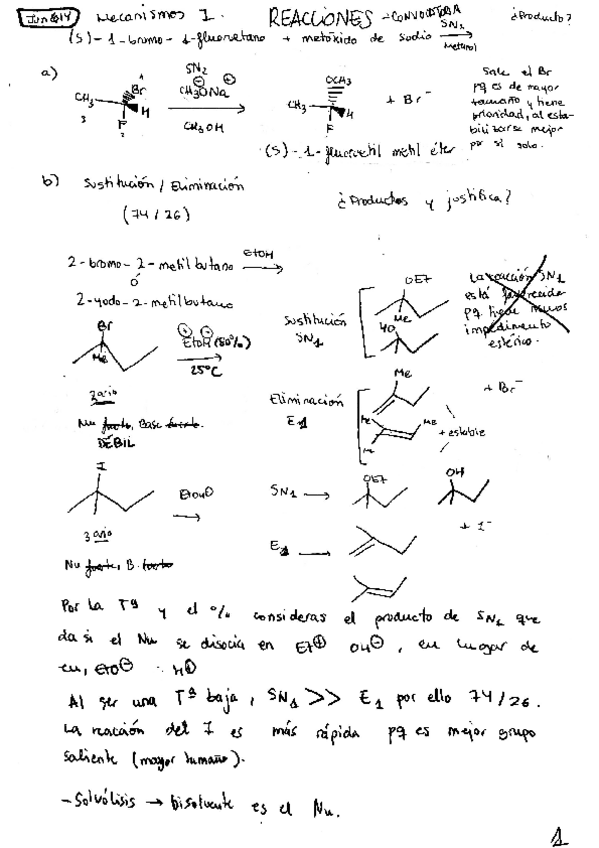 Jun 14 Mecanismos I. REACCIONES - CONVOCATORIA
(S)-1-bromo-1-fluoroetano + metóxido de sodio SN2 Metanol ¿Producto?
a) CH3 3 Br 1 H F 2 SN2 CH3ONa CH3OH OCH3 CH3 H F + Br-
(S)-1-fluoroetil metil éter
Sale el Br
pq es de mayor
tamaño y tiene
prioridad, al esta-
bilizarse mejor
por si solo.
b) Sustitución / Eliminación
(74/26)
¿Productos y justifica?
2-bromo-2-metilbutano EtOH
ó
2-yodo-2-metilbutano
Br Me EtOH (80%) 25ºC
3ario
Nu fuerte, Base fuerte.
DÉBIL
Sustitución
SN1
OET Me
HO
La reacción SN1
está favorecida
pq tiene menos
impedimento
estérico.
Eliminación
E1
Me
Me Me Me + estable
+ Br-
I
3ario
Nu fuerte, B. fuerte
SN1 → OET OH
+ I-
E1 →
Por la Tª y el % consideras el producto de SN1 que
da si el Nu se disocia en ET+ OH-, en lugar de
en, EtO- H+
Al ser una Tª baja, SN1 >> E1 por ello 74/26.
La reacción del I es más rápida pq es mejor grupo
saliente (mayor tamaño).
- Solvólisis → disolvente es el Nu.
1